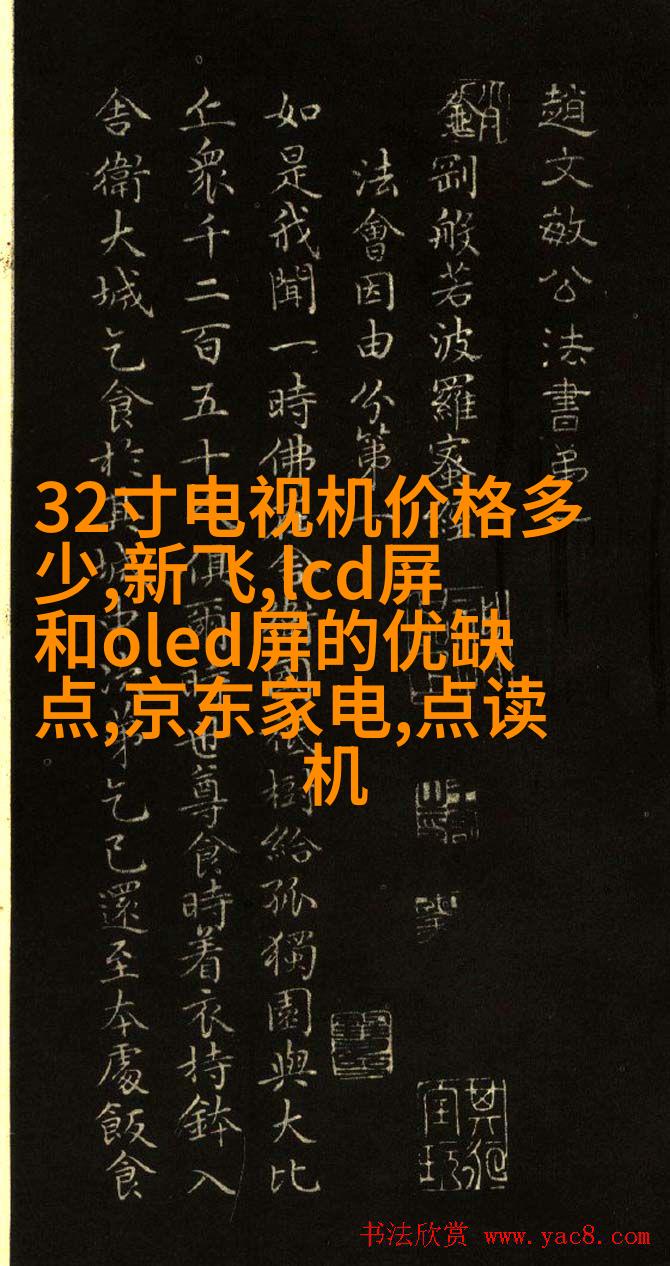 趙文敏公法書弟一
金剛般若波羅蜜經
法會因由分第一
如是我聞一時佛舍給孤獨園與大比
丘眾千二百五十俱爾時也尊食時着衣持鉢入
舎衛大城乞食於其城中次弟乞已還至本處飯食
32寸电视机价格多
少,新飞,lcd屏
和oled屏的优缺
点,京东家电,点读
机
书法欣赏 www.yac8.com